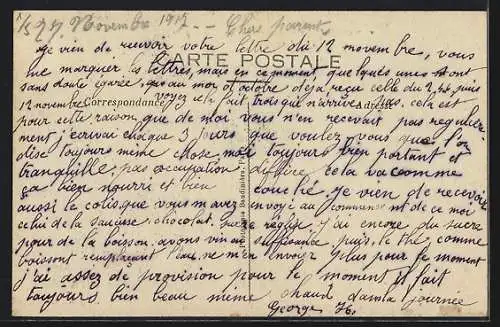 le 27 Novembre 1917 - Chers parents
Je viens de recevoir votre lettre du 12 novembre, vous
CARTE POSTALE
me marquer les lettres, mais en ce moment, quelques unes sont
sans doute égarée, au mois d'octobre déjà reçu celle du 2, 4, puis
12 novembre voyez cela fait trois qui n'arrive pas. cela est
Correspondance Adresse
pour cette raison que de moi vous n'en recevait pas regulière
ment j'ecrivai chaque 3 jours que voulez vous que l'on
dise toujours même chose, moi toujours bien portant et
tranquille, pas occupation difficile, cela va comme
ça bien nourri et bien couché. Je viens de recevoir
aussi le colis que vous m'avez envoyé au commencement de ce moi
celui de la saucisse, chocolat, reglisse j'ai encore du sucre
pour de la boisson, avons vin en suffisance, puis le thé, comme
boisson remplaçant l'eau, ne m'en envoyer plus pour le moment
j'ai assez de provision pour le moment il fait
toujours bien beau même chaud dans la journée
George